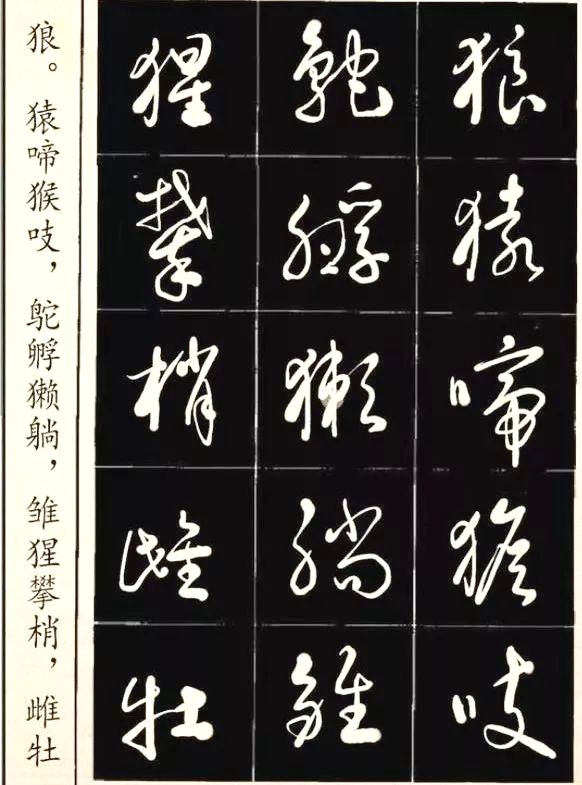 狼猿啼猴吱
鸵孵獭躺雏
猩攀梢雌牡
狼。猿啼猴吱，鸵孵獭躺，雏猩攀梢，雌牡